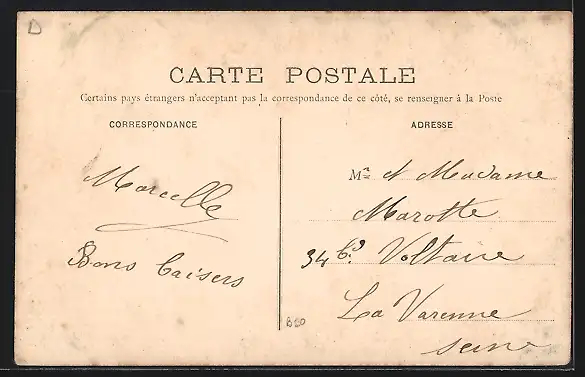 D
CARTE POSTALE
Certains pays étrangers n'acceptant pas la correspondance de ce côté, se renseigner à la Poste
CORRESPONDANCE
Marcelle
Bons baisers
ADRESSE
Mr et Madame
Marotte
34 Bd Voltaire
La Varenne
Seine